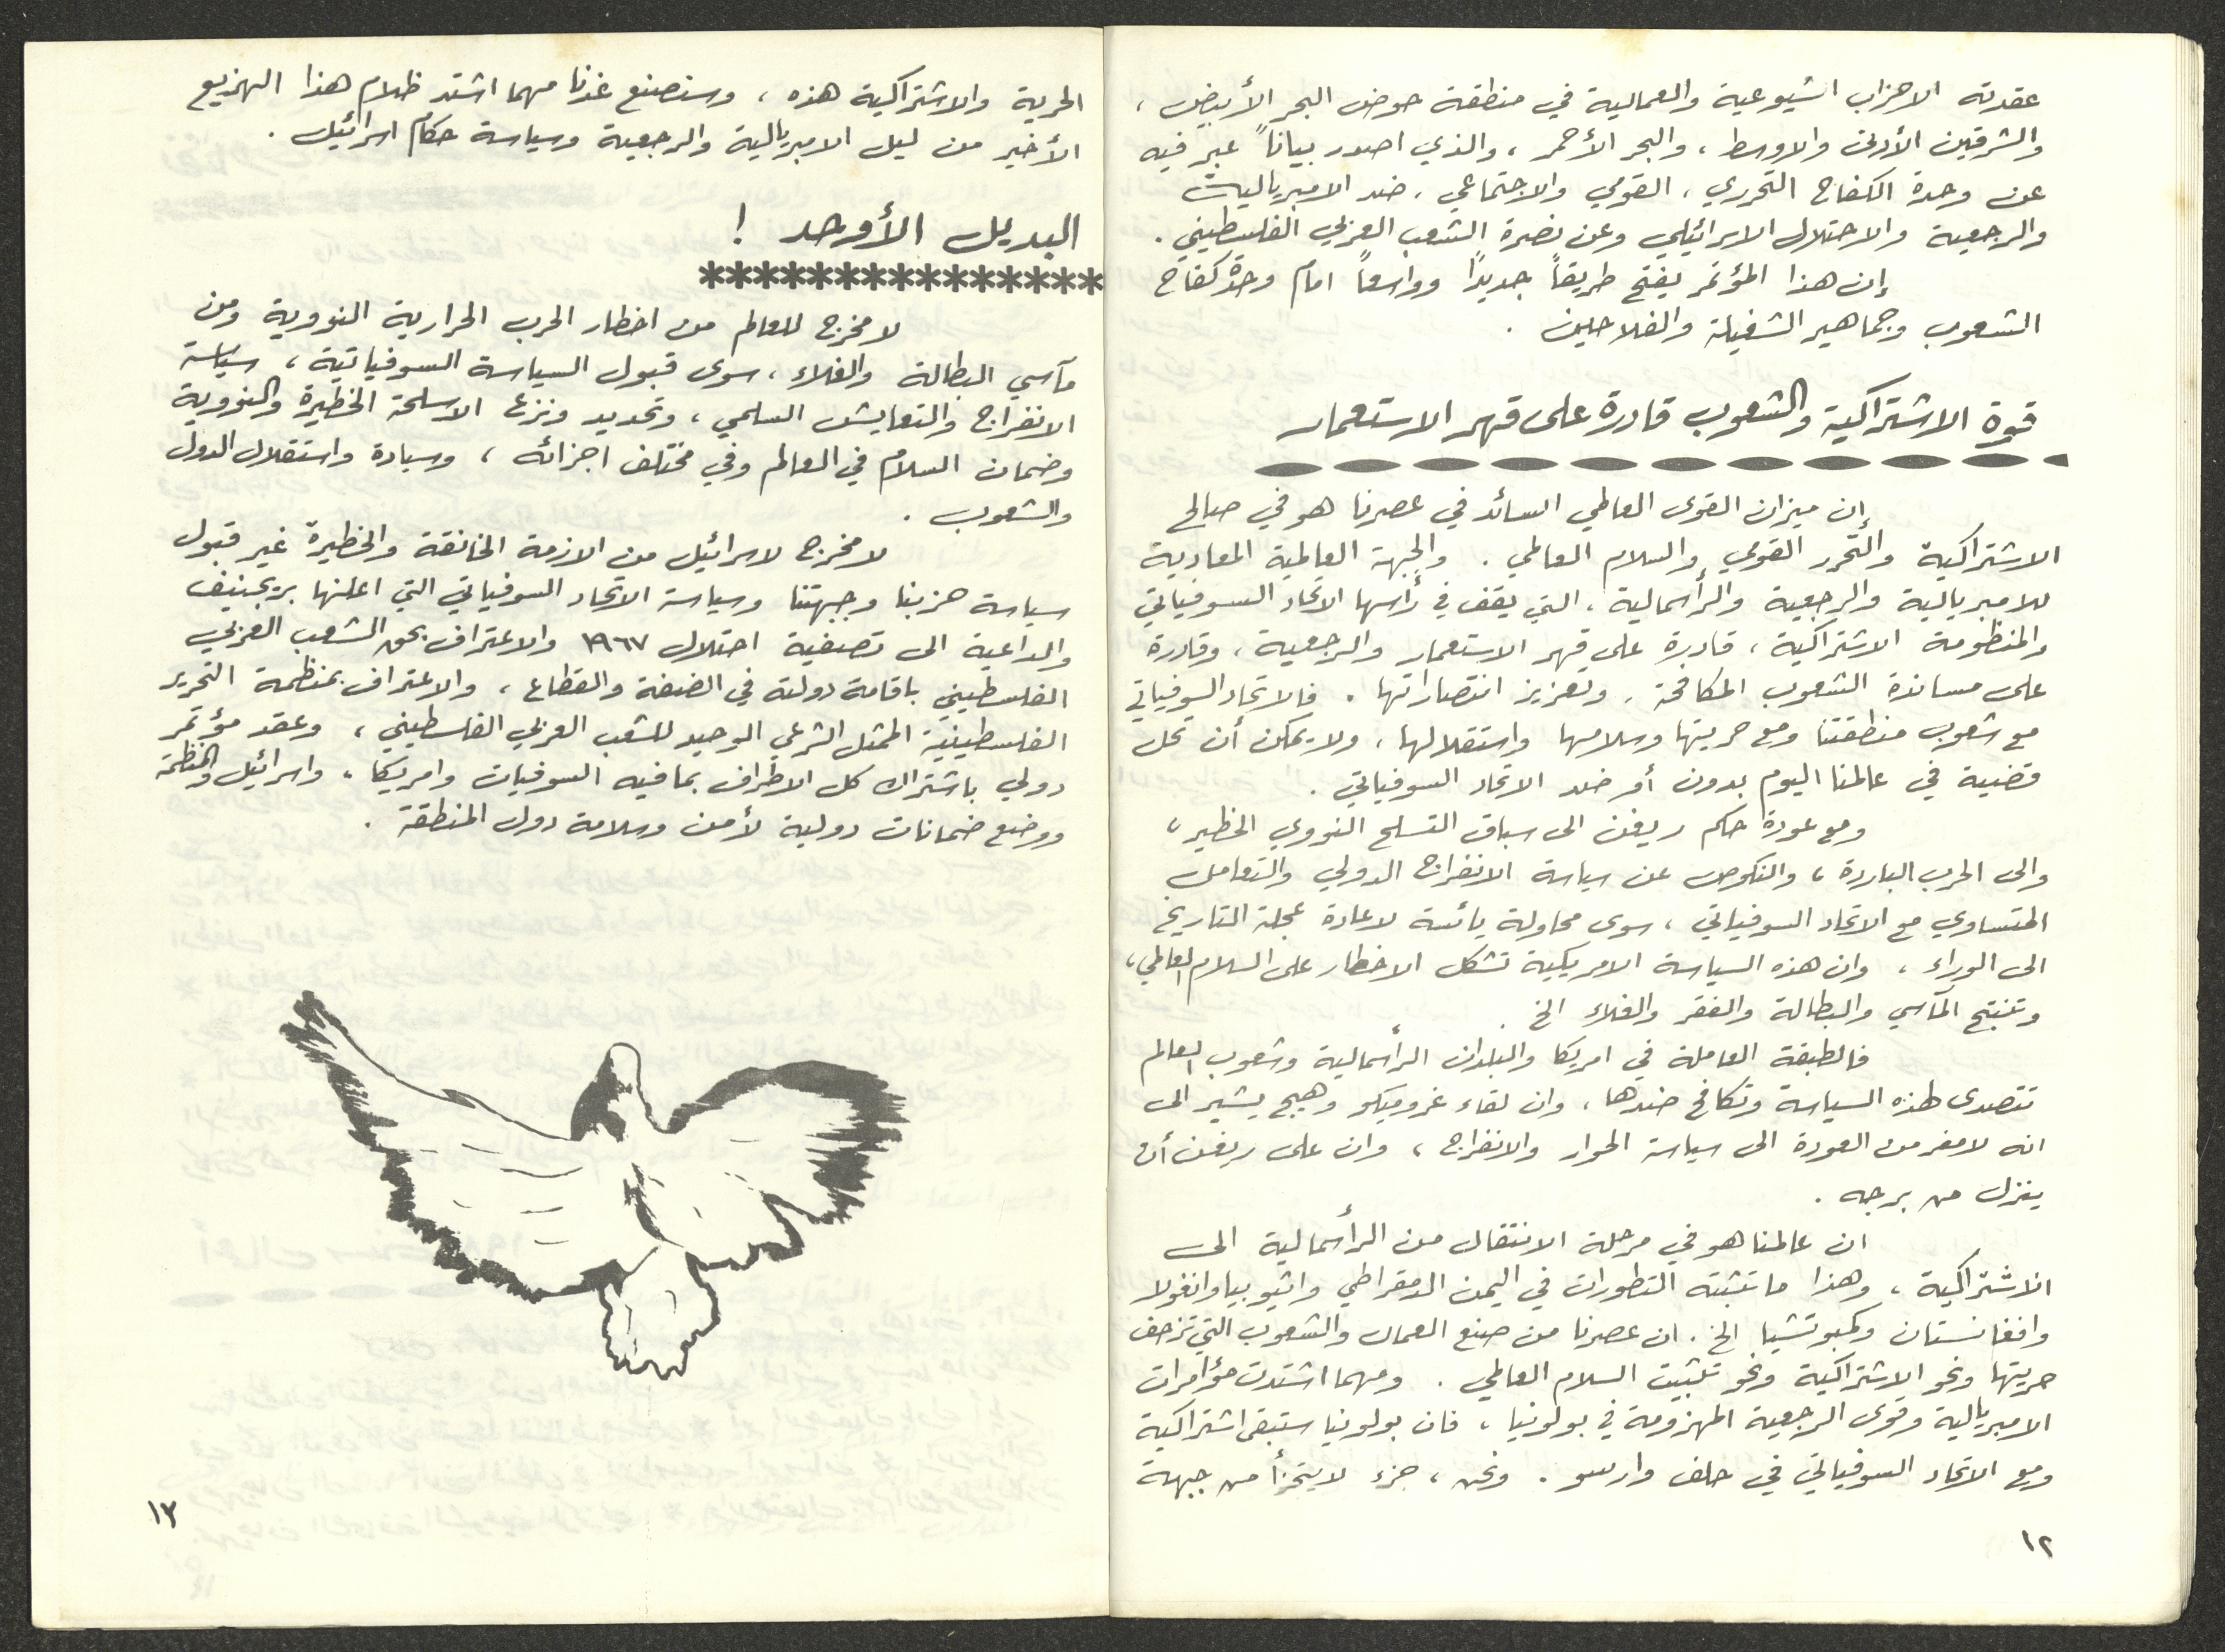 عقدته الاحزاب الشيوعية والعمالية في منطقة حوض البحر الأبيض ،
والشرقين الأدنى والاوسط ، والبحر الأحمر ، والذي اصدر بياناً عبر فيه
عن وحدة الكفاح التحرري ، القومي والاجتماعي ، ضد الامبريالية
والرجعية والاحتلال الاسرائيلي وعن نصرة الشعب العربي الفلسطيني .
إن هذا المؤتمر يفتح طريقاً جديدًا وواسعاً امام وحدة كفاح
الشعوب وجماهير الشغيلة والفلاحين .
قوة الاشتراكية والشعوب قادرة على قهر الاستعمار
إن ميزان القوى العالمي السائد في عصرنا هو في صالح
الاشتراكية والتحرر القومي والسلام العالمي . والجبهة العالمية المعادية
للامبريالية والرجعية والرأسمالية ، التي يقف في رأسها الاتحاد السوفياتي
والمنظومة الاشتراكية ، قادرة على قهر الاستعمار والرجعية ، وقادرة
على مساندة الشعوب المكافحة ، وتعزيز انتصاراتها . فالاتحاد السوفياتي
مع شعوب منطقتنا ومع حريتها وسلامها واستقلالها ، ولا يمكن أن تحل
قضية في عالمنا اليوم بدون أو ضد الاتحاد السوفياتي .
ومع عودة حكم ريغن الى سباق التسلح النووي الخطير ،
والى الحرب الباردة ، والنكوص عن سياسة الانفراج الدولي والتعامل
المتساوي مع الاتحاد السوفياتي ، سوى محاولة يائسة لاعادة عجلة التاريخ
الى الوراء ، وان هذه السياسة الامريكية تشكل الاخطار على السلام العالمي ،
وتنتج المآسي والبطالة والفقر والغلاء الخ .
فالطبقة العاملة في امريكا والبلدان الرأسمالية وشعوب العالم
تتصدى لهذه السياسة وتكافح ضدها ، وان لقاء غروميكو وهيج يشير الى
انه لا مفر من العودة الى سياسة الحوار والانفراج ، وان على ريغن أن
ينزل من برجه .
ان عالمنا هو في مرحلة الانتقال من الرأسمالية الى
الاشتراكية ، وهذا ما تثبته التطورات في اليمن الدمقراطي واثيوبيا وانغولا
وافغانستان وكمبوتشيا الخ . ان عصرنا من صنع العمال والشعوب التي تزحف
حريتها ونحو الاشتراكية ونحو تثبيت السلام العالمي . ومهما اشتدت مؤامرات
الامبريالية وقوى الرجعية المهزومة في بولونيا ، فان بولونيا ستبقى اشتراكية
ومع الاتحاد السوفياتي في حلف وارسو . ونحن ، جزء لا يتجزأ من جبهة
١٢
الحرية والاشتراكية هذه ، وسنصنع غدنا مهما اشتد ظلام هذا الهزيع
الأخير من ليل الامبريالية والرجعية وسياسة حكام اسرائيل .
البديل الأوحد !
***************
لا مخرج للعالم من اخطار الحرب الحرارية النووية ومن
مآسي البطالة والغلاء ، سوى قبول السياسة السوفياتية ، سياسة
الانفراج والتعايش السلمي ، وتحديد ونزع الاسلحة الخطيرة والنووية
وضمان السلام في العالم وفي مختلف اجزائه ، وسيادة واستقلال الدول
والشعوب .
لا مخرج لاسرائيل من الازمة الخانقة والخطيرة غير قبول
سياسة حزبنا وجبهتنا وسياسة الاتحاد السوفياتي التي اعلنها بريجنيف
والداعية الى تصفية احتلال ١٩٦٧ والاعتراف بحق الشعب العربي
الفلسطيني باقامة دولته في الضفة والقطاع ، والاعتراف بمنظمة التحرير
الفلسطينية الممثل الشرعي الوحيد للشعب العربي الفلسطيني ، وعقد مؤتمر
دولي باشتراك كل الاطراف بما فيه السوفيات وامريكا ، واسرائيل والمنظمة
ووضع ضمانات دولية لأمن وسلامة دول المنطقة .
١٣